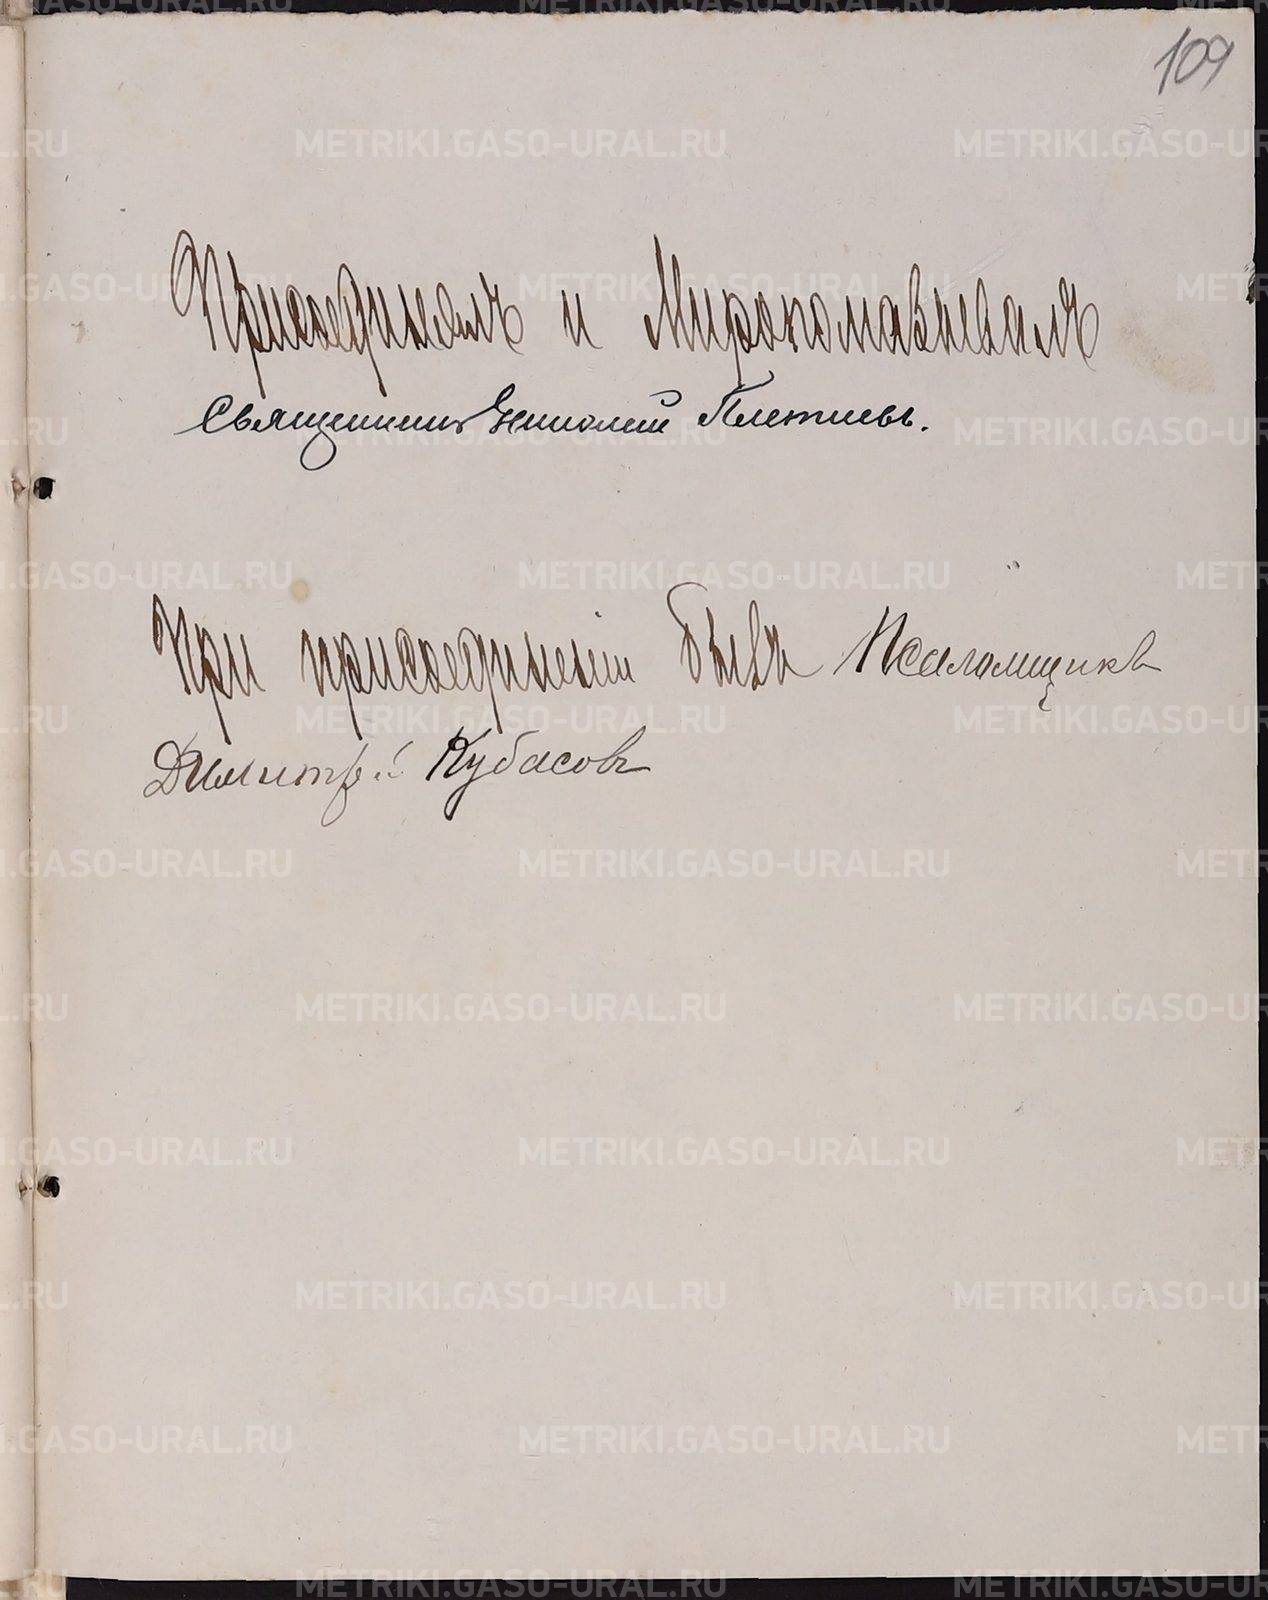 109
Присоединялъ и Мѵропомазывалъ
Священникъ Николай Плетневъ.
При присоединеніи былъ Псаломщикъ
Димитрій Кубасовъ
METRIKI.GASO-URAL.RU